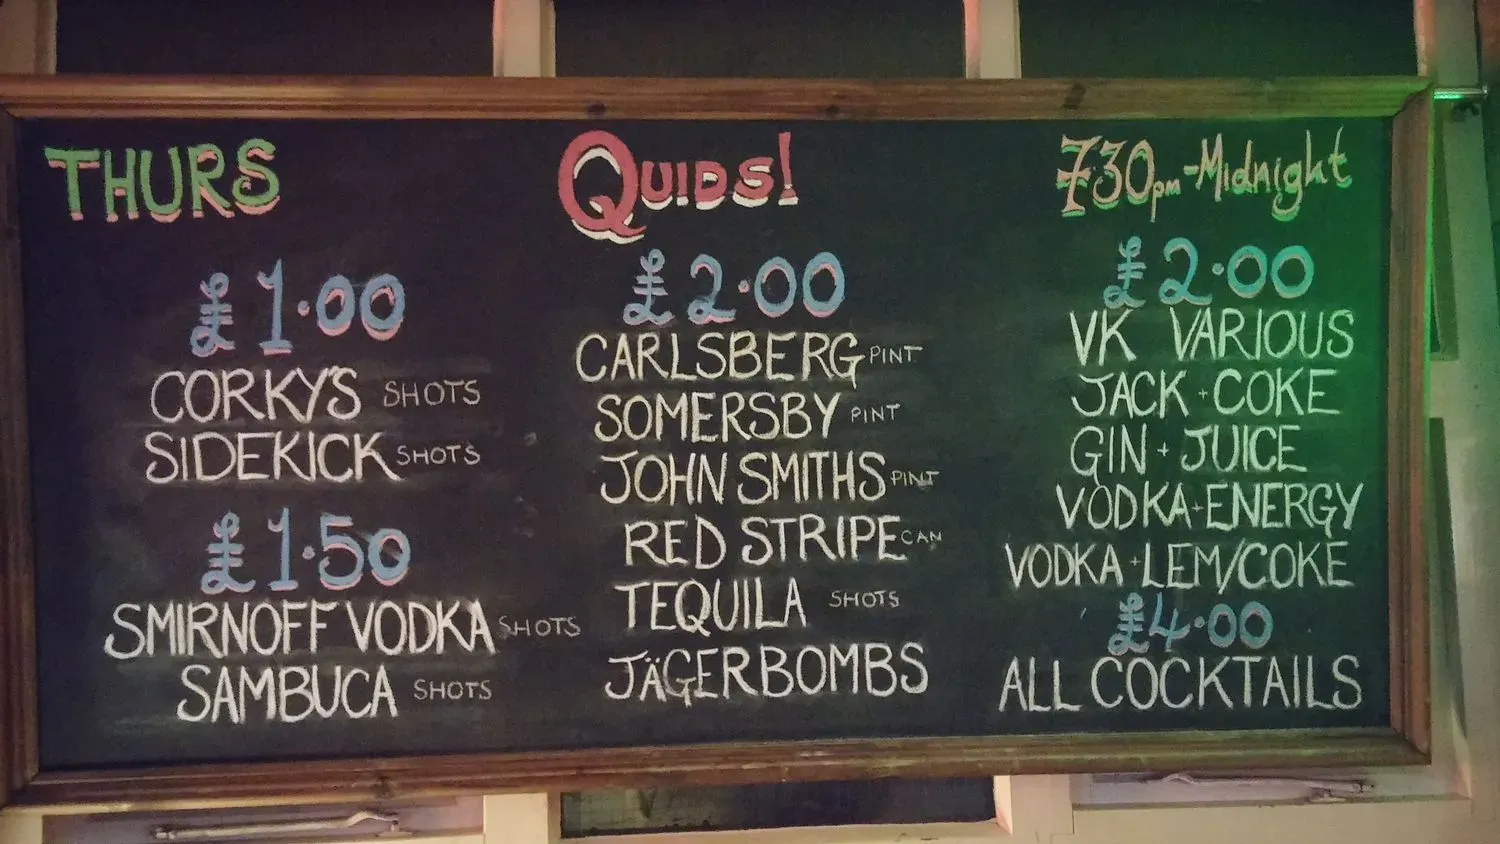 THURS
QUIDS!
730pm-Midnight
£1.00
CORKY'S SHOTS
SIDEKICK SHOTS
£1.50
SMIRNOFF VODKA SHOTS
SAMBUCA SHOTS
£2.00
CARLSBERG PINT
SOMERSBY PINT
JOHN SMITHS PINT
RED STRIPE CAN
TEQUILA SHOTS
JÄGERBOMBS
£2.00
VK VARIOUS
JACK+COKE
GIN+JUICE
VODKA+ENERGY
VODKA+LEM/COKE
£4.00
ALL COCKTAILS